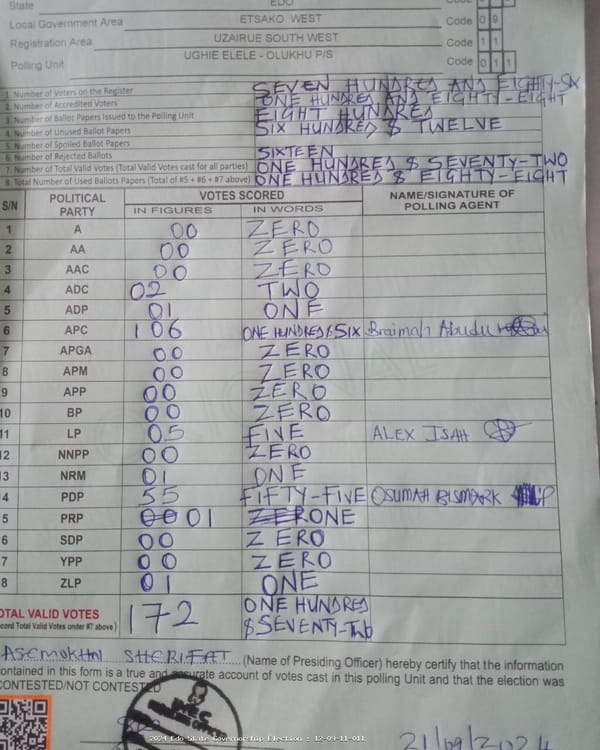 State EDO
Local Government Area ETSAKO WEST Code 0 9
Registration Area UZAIRUE SOUTH WEST Code 1 1
Polling Unit UGHIE ELELE - OLUKHU P/S Code 0 1 1
1. Number of Voters on the Register SEVEN HUNDRED AND EIGHTY-SIX
2. Number of Accredited Voters ONE HUNDRED AND EIGHTY-EIGHT
3. Number of Ballot Papers Issued to the Polling Unit EIGHT HUNDRED
4. Number of Unused Ballot Papers SIX HUNDRED $ TWELVE
5. Number of Spoiled Ballot Papers
6. Number of Rejected Ballots SIXTEEN
7. Number of Total Valid Votes (Total Valid Votes cast for all parties) ONE HUNDRED $ SEVENTY-TWO
8. Total Number of Used Ballots Papers (Total of #5 + #6 + #7 above) ONE HUNDRED $ EIGHTY-EIGHT
S/N POLITICAL PARTY VOTES SCORED NAME/SIGNATURE OF POLLING AGENT
IN FIGURES IN WORDS
1 A 00 ZERO
2 AA 00 ZERO
3 AAC 00 ZERO
4 ADC 02 TWO
5 ADP 01 ONE
6 APC 106 ONE HUNDRED $ SIX Braimah Abudu
7 APGA 00 ZERO
8 APM 00 ZERO
9 APP 00 ZERO
10 BP 00 ZERO
11 LP 05 FIVE ALEX ISAH
12 NNPP 00 ZERO
13 NRM 01 ONE
4 PDP 55 FIFTY-FIVE OSUMAH BISMARK
5 PRP 00 01 ZERO ONE
6 SDP 00 ZERO
7 YPP 00 ZERO
8 ZLP 01 ONE
OTAL VALID VOTES 172 ONE HUNDRED
cord Total Valid Votes under #7 above) $ SEVENTY-TWO
ASEMOKHAI SHERIFAT (Name of Presiding Officer) hereby certify that the information
ontained in this form is a true and accurate account of votes cast in this polling Unit and that the election was
CONTESTED/NOT CONTESTED
2024 Edo State Governorship Election : 12-09-11-011
21/09/2024